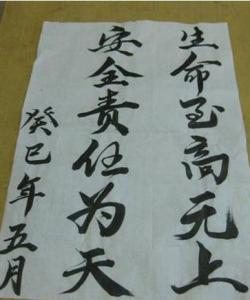 生命至高无上
安全责任为天
癸巳年五月